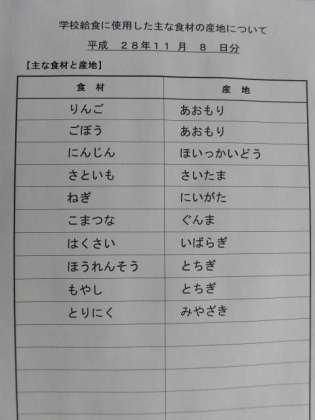 学校給食に使用した主な食材の産地について
平成 28年11月 8日分
【主な食材と産地】
食材 産地
りんご あおもり
ごぼう あおもり
にんじん ほいっかいどう
さといも さいたま
ねぎ にいがた
こまつな ぐんま
はくさい いばらぎ
ほうれんそう とちぎ
もやし とちぎ
とりにく みやざき